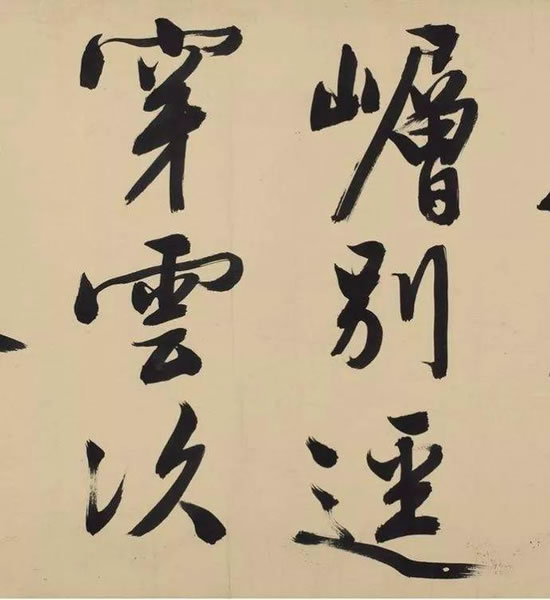 嶒別逕
穿雲次